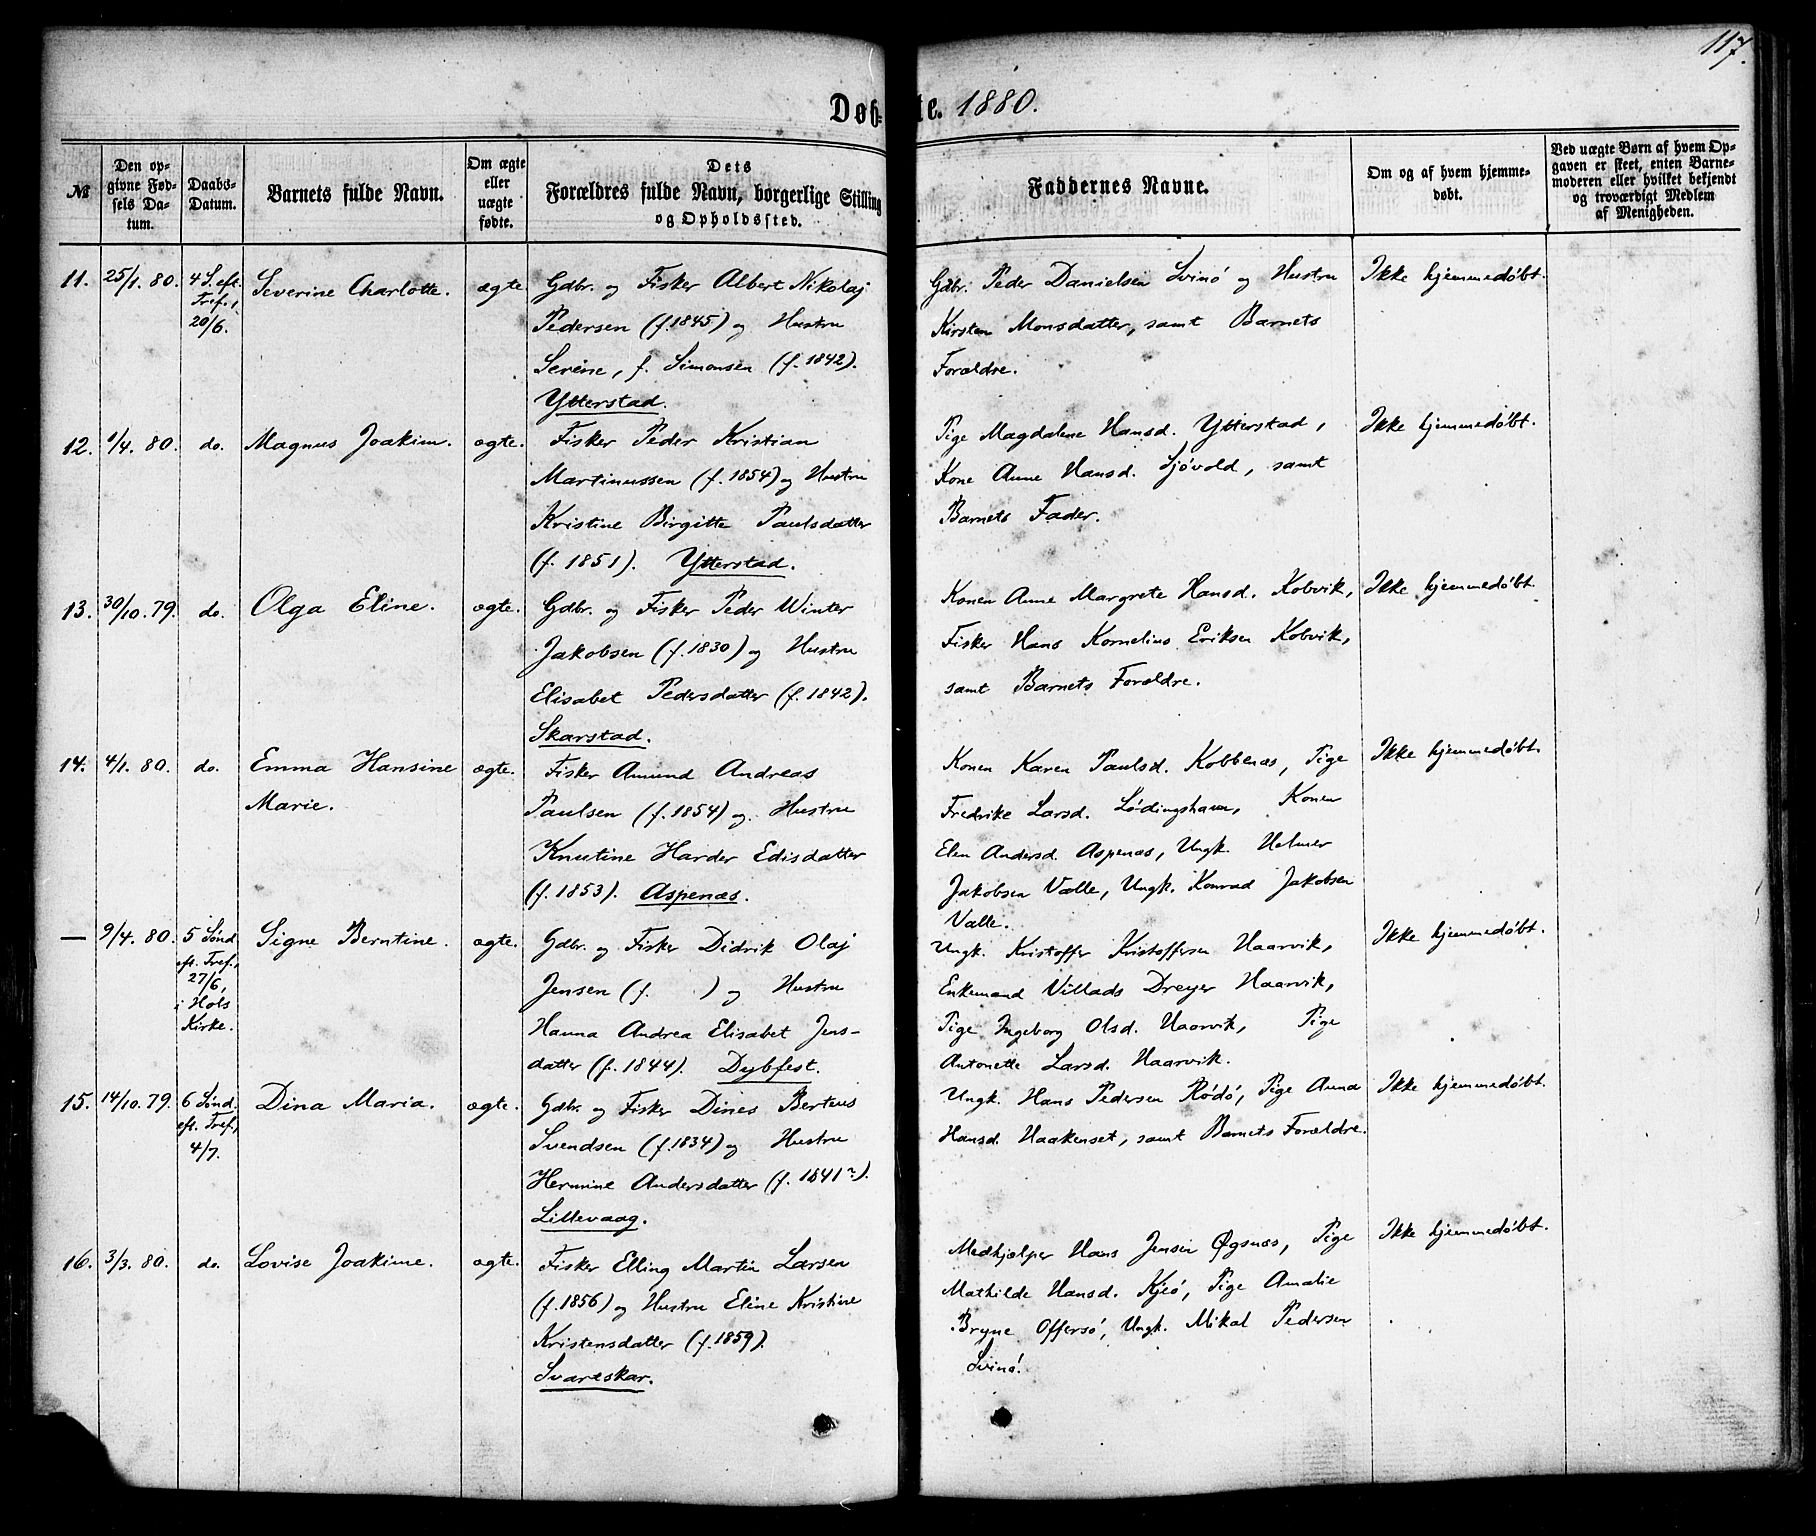 117.
Døbte. 1880.
№
Den opgivne Fødsels Datum.
Daabs-Datum.
Barnets fulde Navn.
Om ægte eller uægte fødte.
Dets Forældres fulde Navn, borgerlige Stilling og Opholdssted.
Faddernes Navne.
Om og af hvem hjemmedøbt.
Ved uægte Børn af hvem Opgaven er skeet, enten Barnemoderen eller hvilket bekjendt og troværdigt Medlem af Menigheden.
11. 25/1. 80. 4 S. eft. Tref., 20/6. Severine Charlotte. ægte
Gdbr. og Fisker Albert Nikolaj
Pedersen (f. 1845) og Hustru
Serine, f. Simonsen (f. 1842).
Ytterstad.
Gdbr. Peder Danielsen Svinö og Hustru
Kirsten Monsdatter, samt Barnets
Forældre.
Ikke hjemmedøbt.
12. 1/4. 80. do. Magnus Joakim. ægte.
Fisker Peder Kristian
Martinussen (f. 1854) og Hustru
Kristine Birgitte Paulsdatter
(f. 1851). Ytterstad.
Pige Magdalene Hansd. Ytterstad,
Kone Anne Hansd. Sjövold, samt
Barnets Fader.
Ikke hjemmedøbt.
13. 30/10. 79. do. Olga Eline. ægte.
Gdbr. og Fisker Peder Winter
Jakobsen (f. 1830) og Hustru
Elisabet Pedersdatter (f. 1842).
Skarstad.
Konen Anne Margrete Hansd. Kobvik,
Fisker Hans Kornelius Eriksen Kobvik,
samt Barnets Forældre.
Ikke hjemmedøbt.
14. 4/1. 80. do. Emma Hansine
Marie. ægte.
Fisker Amund Andreas
Paulsen (f. 1854) og Hustru
Knutine Harder Edisdatter
(f. 1853). Aspenæs.
Konen Karen Paulsd. Kobbenæs, Pige
Fredrike Larsd. Lödingshavn, Konen
Elen Andersd. Aspenæs, Ungk. Helmer
Jakobsen Valle, Ungk. Konrad Jakobsen
Valle.
Ikke hjemmedøbt.
— 9/4. 80. 5 Sönd. eft. Tref., 27/6, i Hols Kirke. Signe Berntine. ægte.
Gdbr. og Fisker Didrik Olaj
Jensen (f. ) og Hustru
Hanna Andrea Elisabet Jens-
datter (f. 1844). Dybfest.
Ungk. Kristoffer Kristoffersen Haarvik,
Enkemand Villads Dreyer Haarvik,
Pige Ingeborg Olsd. Haarvik, Pige
Antonette Larsd. Haarvik.
Ikke hjemmedøbt.
15. 14/10. 79. 6 Sönd. eft. Tref., 4/7. Dina Maria. ægte.
Gdbr. og Fisker Dines Berteus
Svendsen (f. 1834) og Hustru
Hermine Andersdatter (f. 1841?).
Lillevaag.
Ungk. Hans Pedersen Rödö, Pige Anna
Hansd. Haakenset, samt Barnets Forældre.
Ikke hjemmedøbt.
16. 3/3. 80. do. Lovise Joakime. ægte.
Fisker Elling Martin Larsen
(f. 1856) og Hustru Eline Kristine
Kristensdatter (f. 1859).
Svartskar.
Medhjælper Hans Jensen Øgsnæs, Pige
Mathilde Hansd. Kjeö, Pige Amalie
Bryne Offersö, Ungk. Mikal Pedersen
Svinö.
Ikke hjemmedøbt.